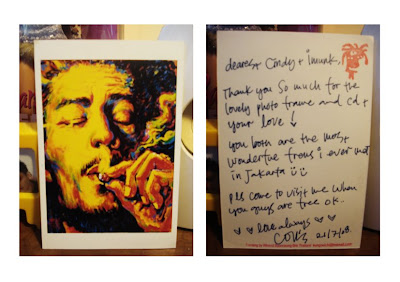 dearest Cindy + imunk,
Thank you so much for the
lovely photo frame and cd +
your love ↓
you both are the most
wonderful frens i ever met
in Jakarta
Pls come to visit me when
you guys are free ok.
love always
21/7/08.